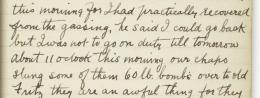 this morning for I had practically recovered
from the gassing, he said I could go back
but I was not to go on duty till tomorrow
about 11 oclock this morning our chaps
slung some of them 60 lb. bombs over to old
Fritz they are an awful thing for they